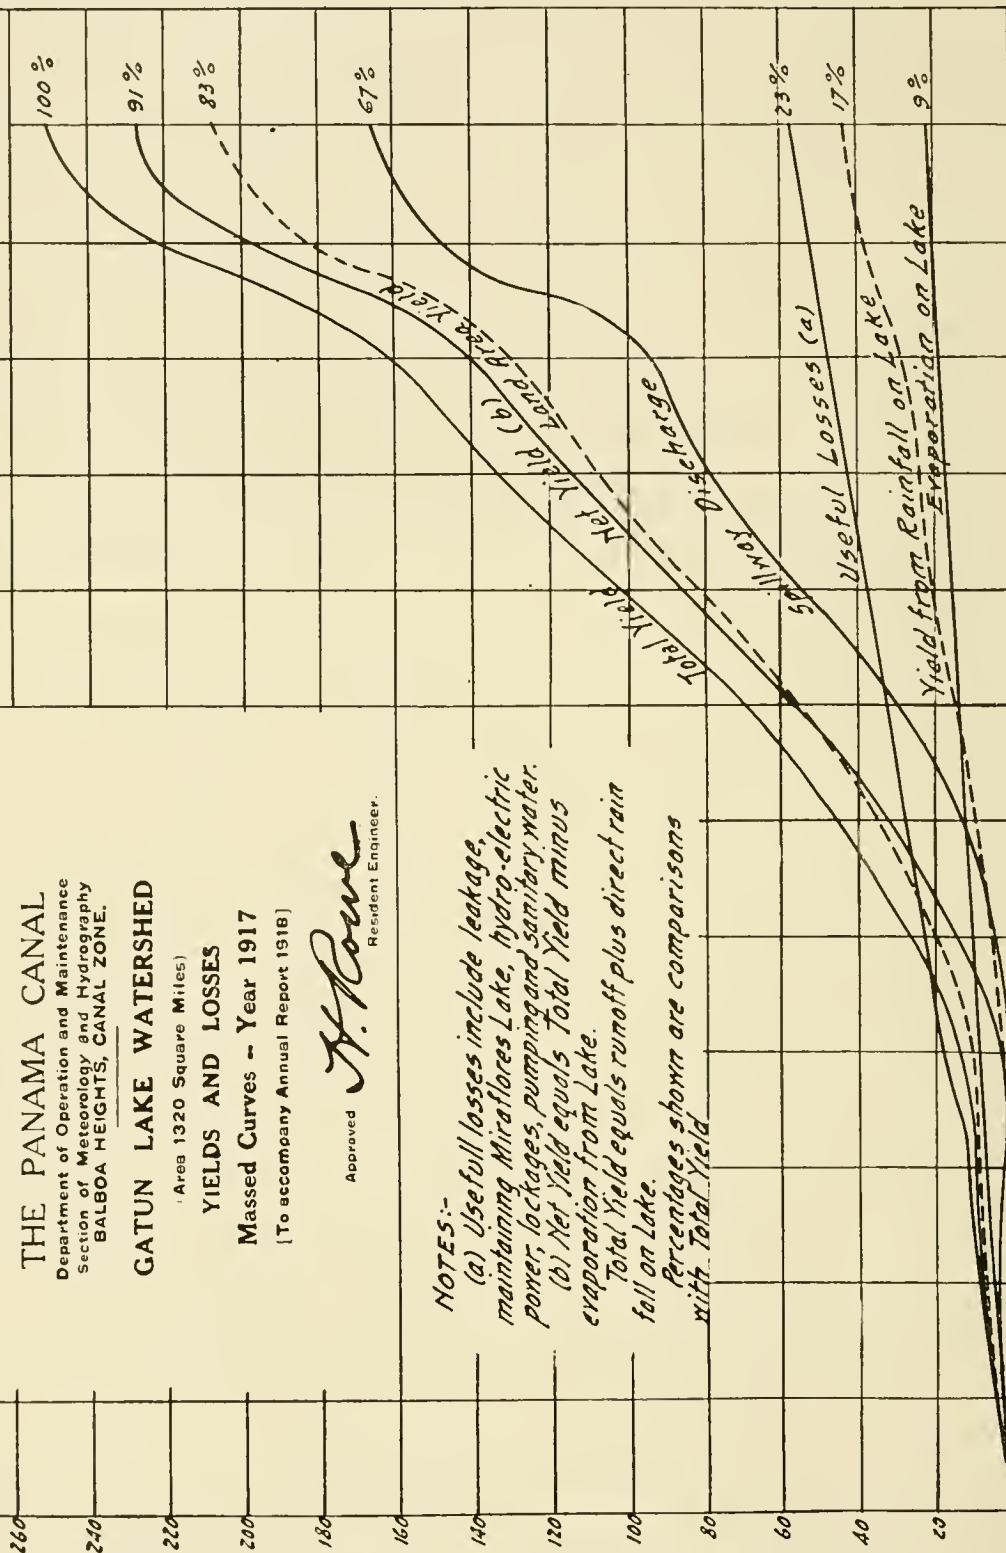 THE PANAMA CANAL
Department of Operation and Maintenance
Section of Meteorology and Hydrography
BALBOA HEIGHTS, CANAL ZONE.
GATUN LAKE WATERSHED
(Area 1320 Square Miles)
YIELDS AND LOSSES
Massed Curves - Year 1917
[To accompany Annual Report 1918]
Approved H. Rowe
Resident Engineer.
NOTES:-
(a) Usefull losses include leakage,
maintaining Miraflores Lake, hydro-electric
power, lockages, pumping and sanitary water.
(b) Net Yield equals Total Yield minus
evaporation from Lake.
Total Yield equals runoff plus direct rain
fall on Lake.
Percentages shown are comparisons
with Total Yield
260
240
220
200
180
160
140
120
100
80
60
40
20
100%
91%
83%
67%
23%
17%
9%
Total Yield
Net Yield (b)
Land Area Yield
Spillway Discharge
Useful Losses (a)
Yield from Rainfall on Lake
Evaporation on Lake